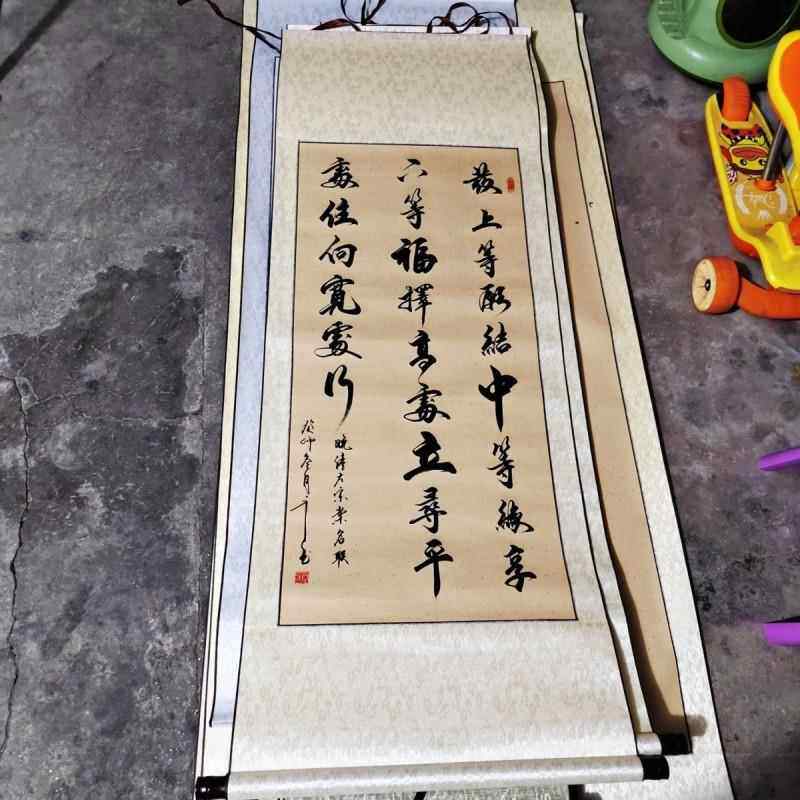 發上等願結中等緣享
下等福擇高處立尋平
處住向寬處行
晚清左宗棠名联
癸卯冬月